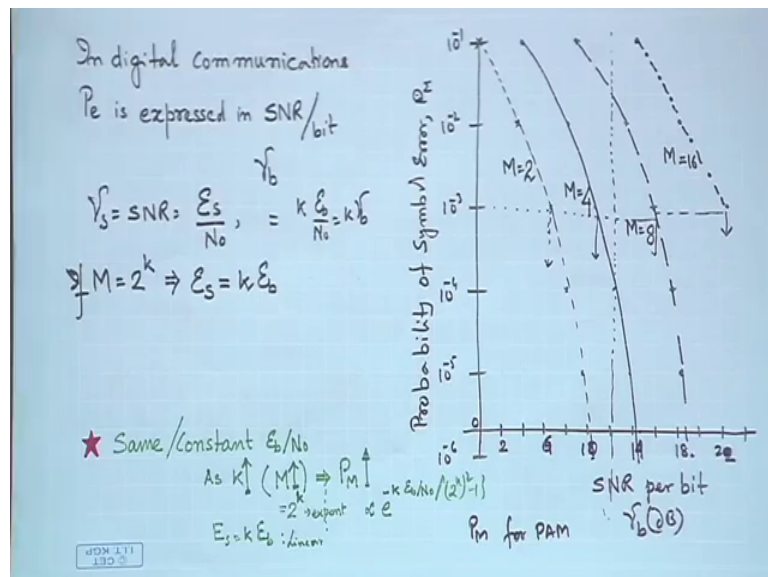 In digital communications
Pe is expressed in SNR/bit
γb
γs = SNR = Es/No, = k Eb/No = kγb
If M = 2^k ⇒ Es = k Eb
★ Same/Constant Eb/No
As K↑ (M↑) ⇒ PM ↑
= 2^k → expont ∝ e^{-k Eb/No/(2^k)^2-1}
Es = k Eb : Linear
© CET
I.I.T. KGP
Probability of Symbol Error, PM
10^-1
10^-2
10^-3
10^-4
10^-5
0
10^-6
M=2
M=4
M=8
M=16
2 6 10 14 18. 20
SNR per bit
γb (dB)
PM for PAM